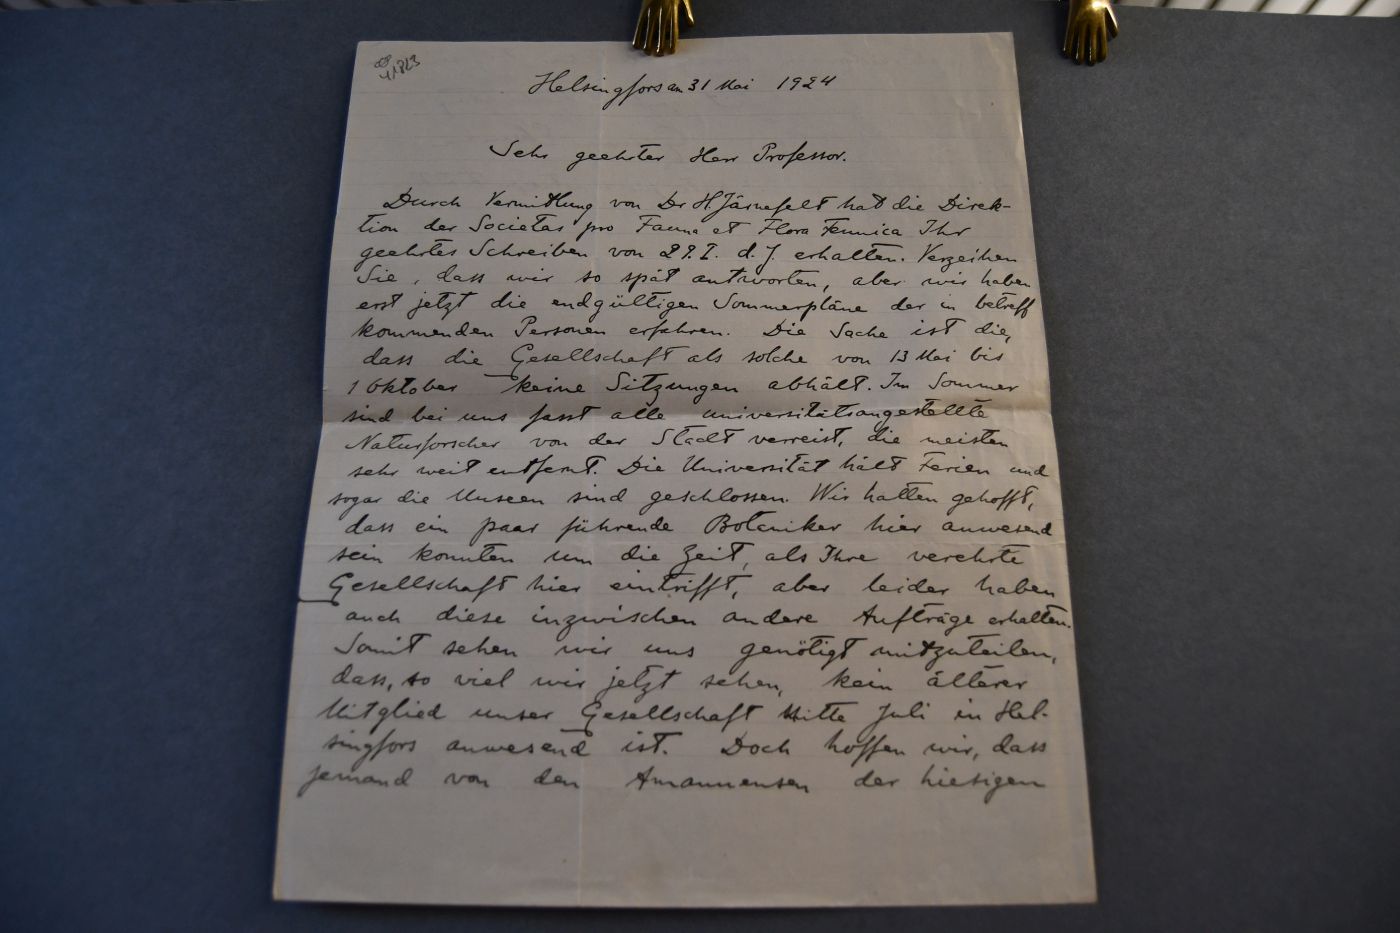 41823
Helsingfors am 31 Mai 1924
Sehr geehrter Herr Professor.
Durch Vermittlung von Dr H. Järnefelt hat die Direk-
tion der Societas pro Fauna et Flora Fennica Ihr
geehrtes Schreiben von 29.I. d. J. erhalten. Verzeihen
Sie, dass wir so spät antworten, aber wir haben
erst jetzt die endgültigen Sommerpläne der in betreff
kommenden Personen erfahren. Die Sache ist die,
dass die Gesellschaft als solche von 13 Mai bis
1 Oktober keine Sitzungen abhält. Im Sommer
sind bei uns fasst alle universitätsangestellte
Naturforscher von der Stadt verreist, die meisten
sehr weit entfernt. Die Universität hält Ferien und
sogar die Museen sind geschlossen. Wir hatten gehofft,
dass ein paar führende Botaniker hier anwesend
sein konnten um die Zeit, als Ihre verehrte
Gesellschaft hier eintrifft, aber leider haben
auch diese inzwischen andere Aufträge erhalten.
Somit sehen wir uns genötigt mitzuteilen,
dass, so viel wir jetzt sehen, kein älterer
Mitglied unser Gesellschaft Mitte Juli in Hel-
singfors anwesend ist. Doch hoffen wir, dass
jemand von den Amanuensen der hiesigen